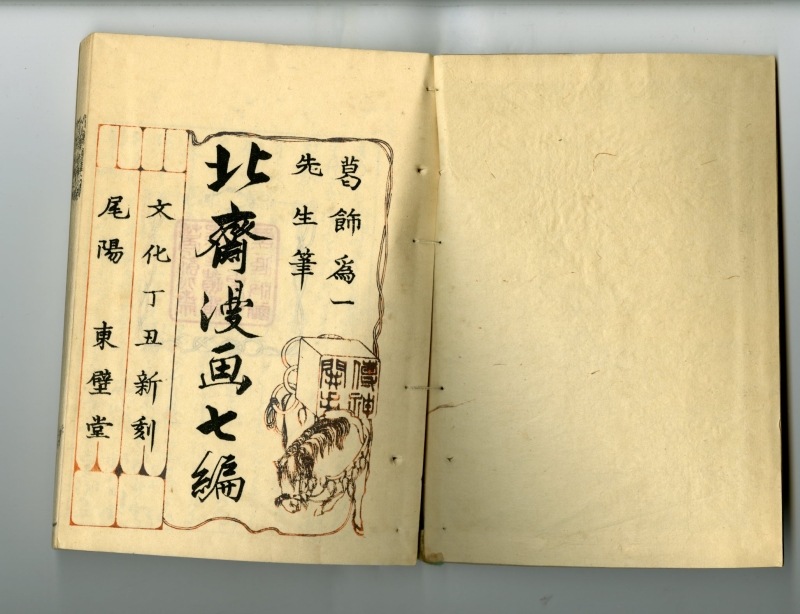 葛飾爲一
先生筆
傳神
開手
北齋漫画七編
文化丁丑新刻
尾陽 東壁堂